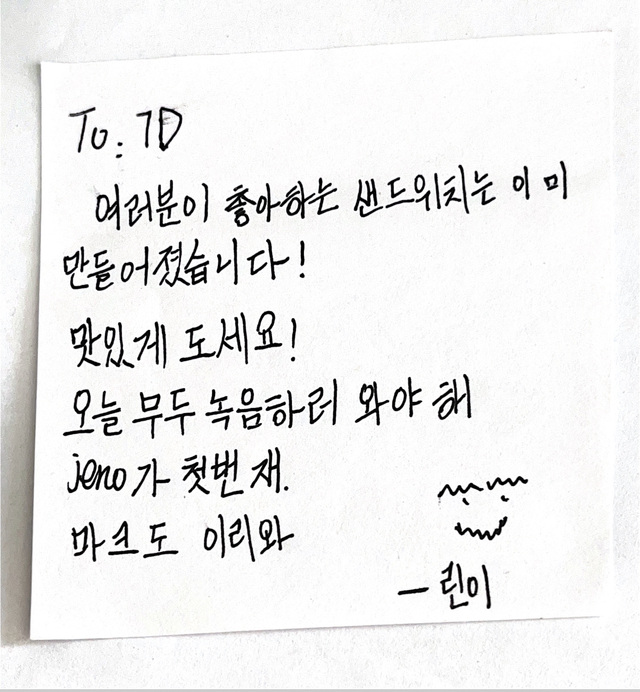 To: 7D
여러분이 좋아하는 샌드위치는 이미
만들어졌습니다!
맛있게 도세요!
오늘 무두 녹음하러 와야 해
jeno가 첫번재.
마크도 이리와
— 린이